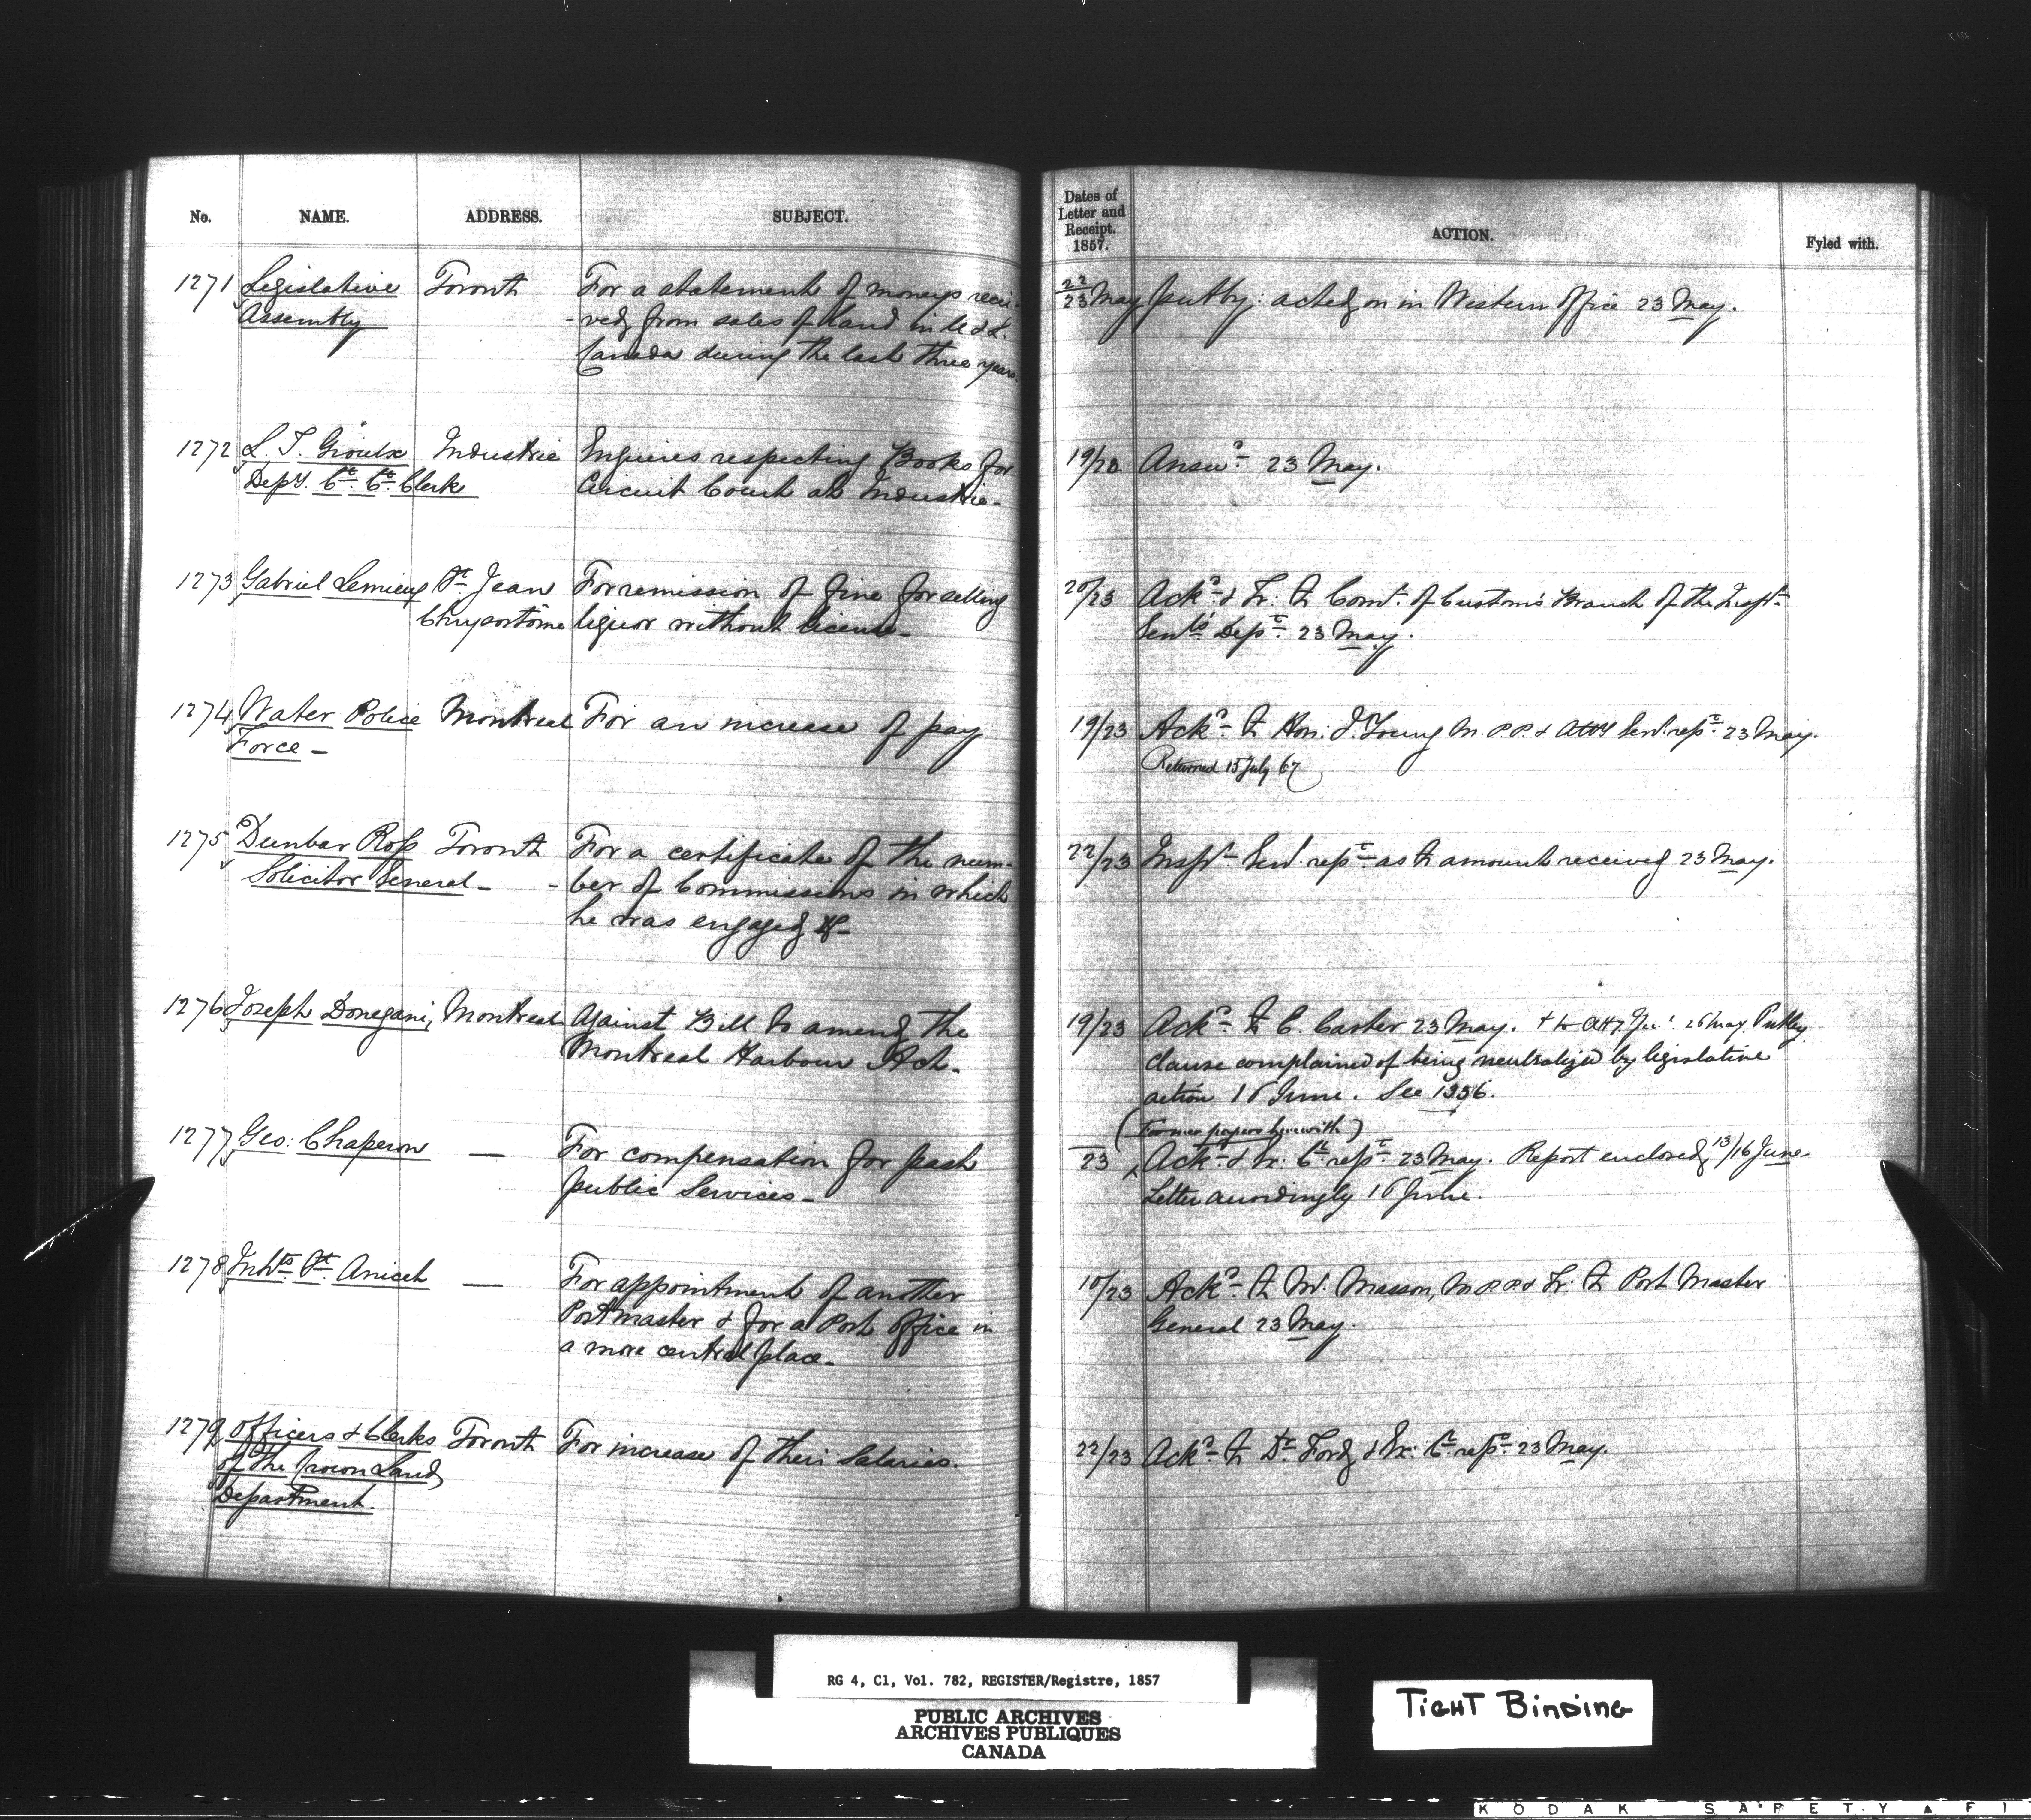 No. NAME. ADDRESS. SUBJECT.
1271 Legislative Toronto For a statement of moneys recei-
Assembly -ved from sales of Land in U & L.
Canada during the last three years.
1272 L. T. Groulx Industrie Inquires respecting Books for
Depy. Ct. Ct. Clerk Circuit Court at Industrie-
1273 Gabriel Lemieux St Jean For remission of fine for selling
Chrysostôme liquor without license-
1274 Water Police Montreal For an increase of pay
Force -
1275 Dunbar Ross Toronto For a certificate of the num-
Solicitor General - -ber of Commissions in which
he was engaged &c-
1276 Joseph Donegani, Montreal Against Bill to amend the
Montreal Harbour Act.
1277 Geo: Chaperon — For compensation for past
public Services -
1278 Inhts. St. Anicet — For appointment of another
Postmaster & for a Post Office in
a more central place.
1279 Officers & Clerks Toronto For increase of their Salaries.
of the Crown Land
Department.
Dates of
Letter and
Receipt.
1857.
ACTION. Fyled with.
22/23 May put by: acted on in Western Office 23 May.
19/23 Answd. 23 May.
20/23 Ackd. & Tr: to Comr. of Customs Branch of the Inspr.
Genls Dept. 23 May.
19/23 Ackd. to Hon: J. Young M.P.P. & Atty Genl. rept. 23 May.
Returned 15 July 67
22/23 Inspr. Genl. rept. as to amount received 23 May.
19/23 Ackd. to C. Carter 23 May. & to Atty Genl. 26 May. Put by
clause complained of being neutralized by legislative
action 16 June. See 1356.
(Former papers herewith)
23 Ackd. & Tr: Ct. rept. 23 May. Report enclosed, 13/16 June
Letter accordingly 16 June.
10/23 Ackd. to Mr. Masson, M.P.P. & Tr: to Post Master
General 23 May.
22/23 Ackd. to Dr. Ford & Tr: Ct. rept. 23 May.
RG 4, C1, Vol. 782, REGISTER/Registre, 1857
PUBLIC ARCHIVES
ARCHIVES PUBLIQUES
CANADA
TIGHT BINDING
KODAK SAFETY ▲ FI